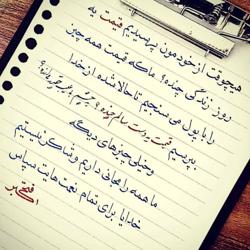 هیچوقت از خودمون پرسیدیم قیمت یه
روز زندگی چنده؟ ما که قیمت همه چیز
را با پول می سنجیم تا حالا شده از خدا
بپرسیم قیمت یه دست سالم چنده؟ چشم بی عیب چقد می ارزه؟
و خیلی چیزهای دیگه
ما همه را مجانی داریم و شاکر نیستیم
خدایا برای تمام نعمت هایت سپاس